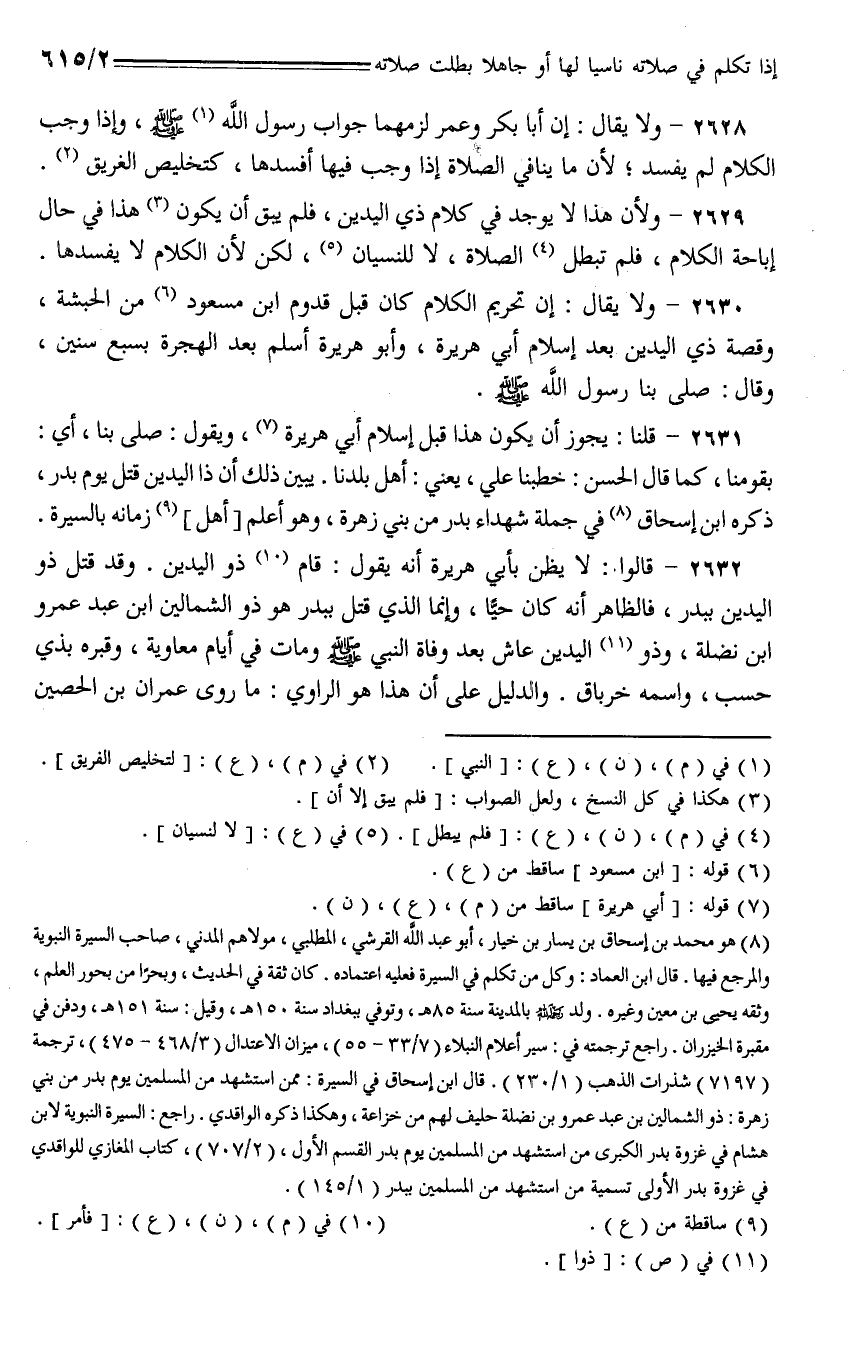 إذا تكلم في صلاته ناسيا لها أو جاهلا بطلت صلاته ٦١٥/٢
٢٦٢٨ - ولا يقال : إن أبا بكر وعمر لزمهما جواب رسول اللَّه (١) ﷺ ، وإذا وجب
الكلام لم يفسد ؛ لأن ما ينافي الصلاة إذا وجب فيها أفسدها ، كتخليص الغريق (٢) .
٢٦٢٩ - ولأن هذا لا يوجد في كلام ذي اليدين ، فلم يبق أن يكون (٣) هذا في حال
إباحة الكلام ، فلم تبطل (٤) الصلاة ، لا للنسيان (٥) ، لكن لأن الكلام لا يفسدها .
٢٦٣٠ - ولا يقال : إن تحريم الكلام كان قبل قدوم ابن مسعود (٦) من الحبشة ،
وقصة ذي اليدين بعد إسلام أبي هريرة ، وأبو هريرة أسلم بعد الهجرة بسبع سنين ،
وقال : صلى بنا رسول اللَّه ﷺ .
٢٦٣١ - قلنا : يجوز أن يكون هذا قبل إسلام أبي هريرة (٧) ، ويقول : صلى بنا ، أي :
بقومنا ، كما قال الحسن : خطبنا علي ، يعني : أهل بلدنا . يبين ذلك أن ذا اليدين قتل يوم بدر ،
ذكره ابن إسحاق (٨) في جملة شهداء بدر من بني زهرة ، وهو أعلم [ أهل ] (٩) زمانه بالسيرة .
٢٦٣٢ - قالوا : لا يظن بأبي هريرة أنه يقول : قام (١٠) ذو اليدين . وقد قتل ذو
اليدين ببدر ، فالظاهر أنه كان حيًّا ، وإنما الذي قتل ببدر هو ذو الشمالين ابن عبد عمرو
ابن نضلة ، وذو (١١) اليدين عاش بعد وفاة النبي ﷺ ومات في أيام معاوية ، وقبره بذي
حسب ، واسمه خرباق . والدليل على أن هذا هو الراوي : ما روى عمران بن الحصين
(١) في ( م ) ، ( ن ) ، ( ع ) : [ النبي ] . (٢) في ( م ) ، ( ع ) : [ لتخليص الفريق ] .
(٣) هكذا في كل النسخ ، ولعل الصواب : [ فلم يبق إلا أن ] .
(٤) في ( م ) ، ( ن ) ، ( ع ) : [ فلم يبطل ] . (٥) في ( ع ) : [ لا لنسيان ] .
(٦) قوله : [ ابن مسعود ] ساقط من ( ع ) .
(٧) قوله : [ أبي هريرة ] ساقط من ( م ) ، ( ع ) ، ( ن ) .
(٨) هو محمد بن إسحاق بن يسار بن خيار ، أبو عبد اللَّه القرشي ، المطلبي ، مولاهم المدني ، صاحب السيرة النبوية
والمرجع فيها . قال ابن العماد : وكل من تكلم في السيرة فعليه اعتماده . كان ثقة في الحديث ، وبحرًا من بحور العلم ،
وثقه يحيى بن معين وغيره . ولد بالمدينة سنة ٨٥هـ ، وتوفي ببغداد سنة ١٥٠هـ ، وقيل : سنة ١٥١هـ ، ودفن في
مقبرة الخيزران . راجع ترجمته في : سير أعلام النبلاء ( ٣٣/٧ - ٥٥ ) ، ميزان الاعتدال ( ٤٦٨/٣ - ٤٧٥ ) ، ترجمة
( ٧١٩٧ ) شذرات الذهب ( ٢٣٠/١ ) . قال ابن إسحاق في السيرة : ممن استشهد من المسلمين يوم بدر من بني
زهرة : ذو الشمالين بن عبد عمرو بن نضلة حليف لهم من خزاعة ، وهكذا ذكره الواقدي . راجع : السيرة النبوية لابن
هشام في غزوة بدر الكبرى من استشهد من المسلمين يوم بدر القسم الأول ، ( ٧٠٧/٢ ) ، كتاب المغازي للواقدي
في غزوة بدر الأولى تسمية من استشهد من المسلمين ببدر ( ١٤٥/١ ) .
(٩) ساقطة من ( ع ) . (١٠) في ( م ) ، ( ن ) ، ( ع ) : [ فأمر ] .
(١١) في ( ص ) : [ ذوا ] .